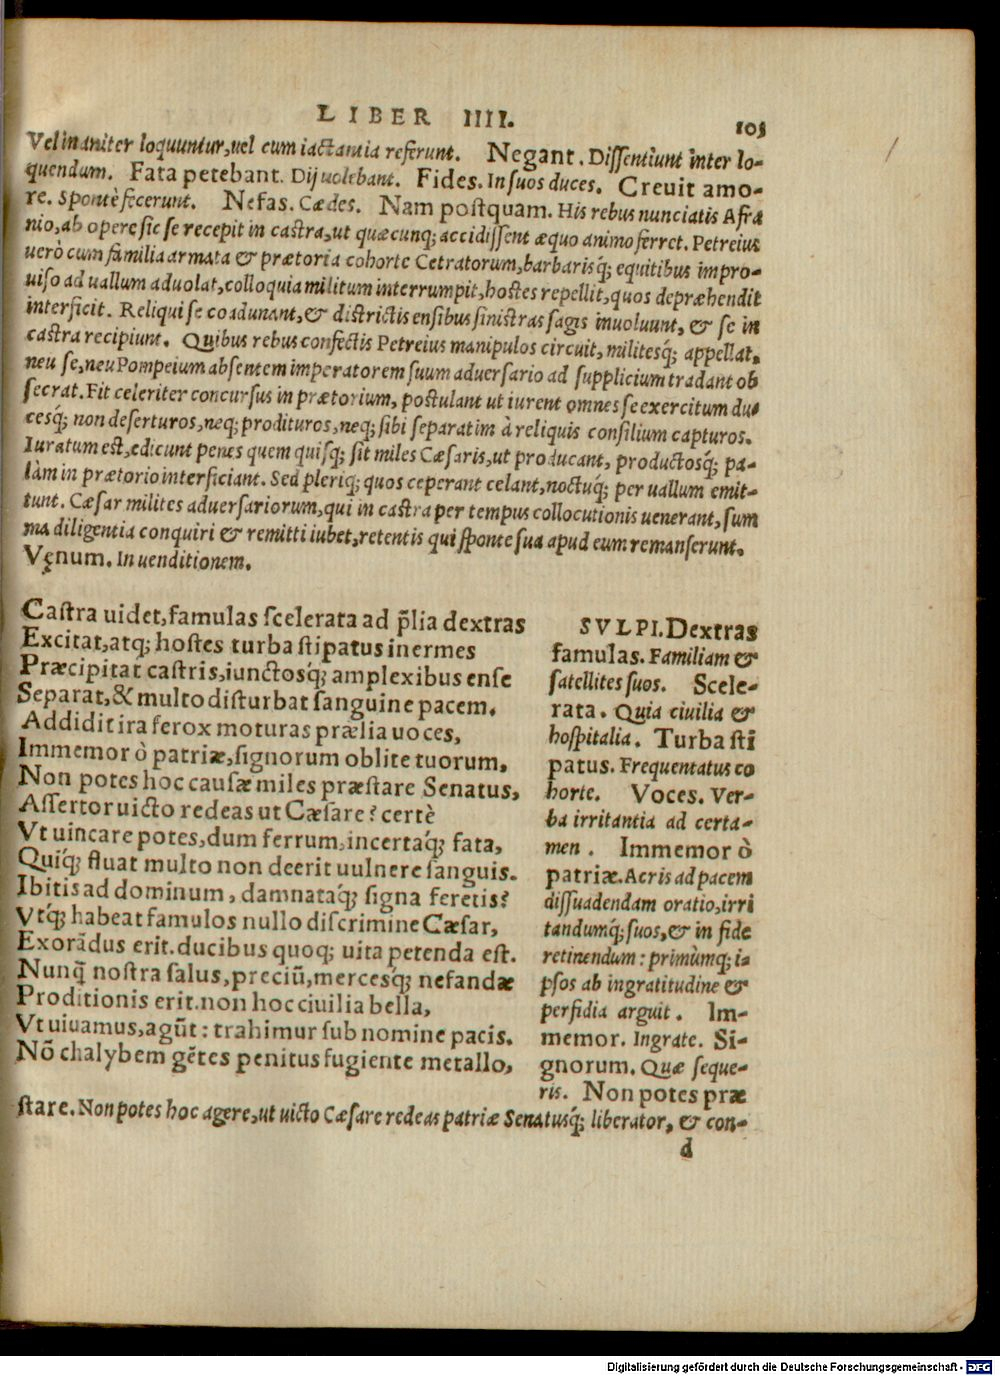 LIBER IIII.
103
Vel inaniter loquuntur, uel cum iactantia referunt. Negant. Dissentiunt inter lo-
quendum. Fata petebant. Dij uolebant. Fides. In suos duces. Creuit amo-
re. Spontè fecerunt. Nefas. Cædes. Nam postquam. His rebus nunciatis Afrā
nio, ab opere sic se recepit in castra, ut quæcunq; accidissent æquo animo ferret. Petreius
uerò cum familia armata & prætoria cohorte Cetratorum, barbarisq́; equitibus impro-
uiso ad uallum aduolat, colloquia militum interrumpit, hostes repellit, quos depræhendit
interficit. Reliqui se coadunant, & districtis ensibus sinistras sagis inuoluunt, & se in
castra recipiunt. Quibus rebus confectis Petreius manipulos circuit, militesq́; appellat,
neu se, neu Pompeium absentem imperatorem suum aduersario ad supplicium tradant ob
secrat. Fit celeriter concursus in prætorium, postulant ut iurent omnes se exercitum du-
cesq́; non deserturos, neq; prodituros, neq; sibi separatim à reliquis consilium capturos.
Iuratum est, edicunt penes quem quisq; sit miles Cæsaris, ut producant, productosq́; pa-
làm in prætorio interficiant. Sed pleriq; quos ceperant celant, noctuq́; per uallum emit-
tunt. Cæsar milites aduersariorum, qui in castra per tempus collocutionis uenerant, sum
ma diligentia conquiri & remitti iubet, retentis qui sponte sua apud eum remanserunt.
Vęnum. In uenditionem.
Castra uidet, famulas scelerata ad p̃lia dextras
Excitat, atq; hostes turba stipatus inermes
Præcipitat castris, iunctosq́; amplexibus ense
Separat, & multo disturbat sanguine pacem.
Addidit ira ferox moturas prælia uoces,
Immemor ò patriæ, signorum oblite tuorum,
Non potes hoc causæ miles præstare Senatus,
Assertor uicto redeas ut Cæsare? certè
Vt uincare potes, dum ferrum, incertaq́; fata,
Quiq́; fluat multo non deerit uulnere sanguis.
Ibitis ad dominum, damnataq́; signa feretis?
Vtq́; habeat famulos nullo discrimine Cæsar,
Exorādus erit. ducibus quoq; uita petenda est.
Nunq̄ nostra salus, preciū, mercesq́; nefandæ
Proditionis erit. non hoc ciuilia bella,
Vt uiuamus, agūt: trahimur sub nomine pacis.
Nō chalybem gētes penitus fugiente metallo,
SVLPI. Dextras
famulas. Familiam &
satellites suos. Scele-
rata. Quia ciuilia &
hospitalia. Turba sti
patus. Frequentatus co
horte. Voces. Ver-
ba irritantia ad certa-
men. Immemor ò
patriæ. Acris ad pacem
dissuadendam oratio, irri
tandumq́; suos, & in fide
retinendum: primùmq; i-
psos ab ingratitudine &
perfidia arguit. Im-
memor. Ingrate. Si-
gnorum. Quæ seque-
ris. Non potes præ
stare. Non potes hoc agere, ut uicto Cæsare redeas patriæ Senatusq́; liberator, & con-
d
Digitalisierung gefördert durch die Deutsche Forschungsgemeinschaft - DFG